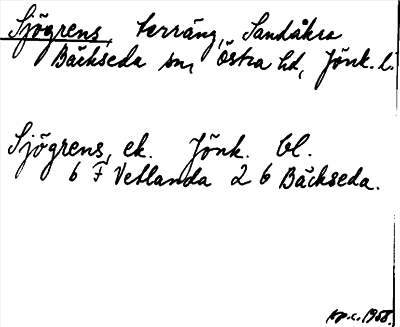 Sjögrens, terräng, Sandåkra
Bäckseda sn, Östra hd, Jönk. l.
Sjögrens, ek. Jönk. bl.
6 F Vetlanda 2 b Bäckseda.
1968.